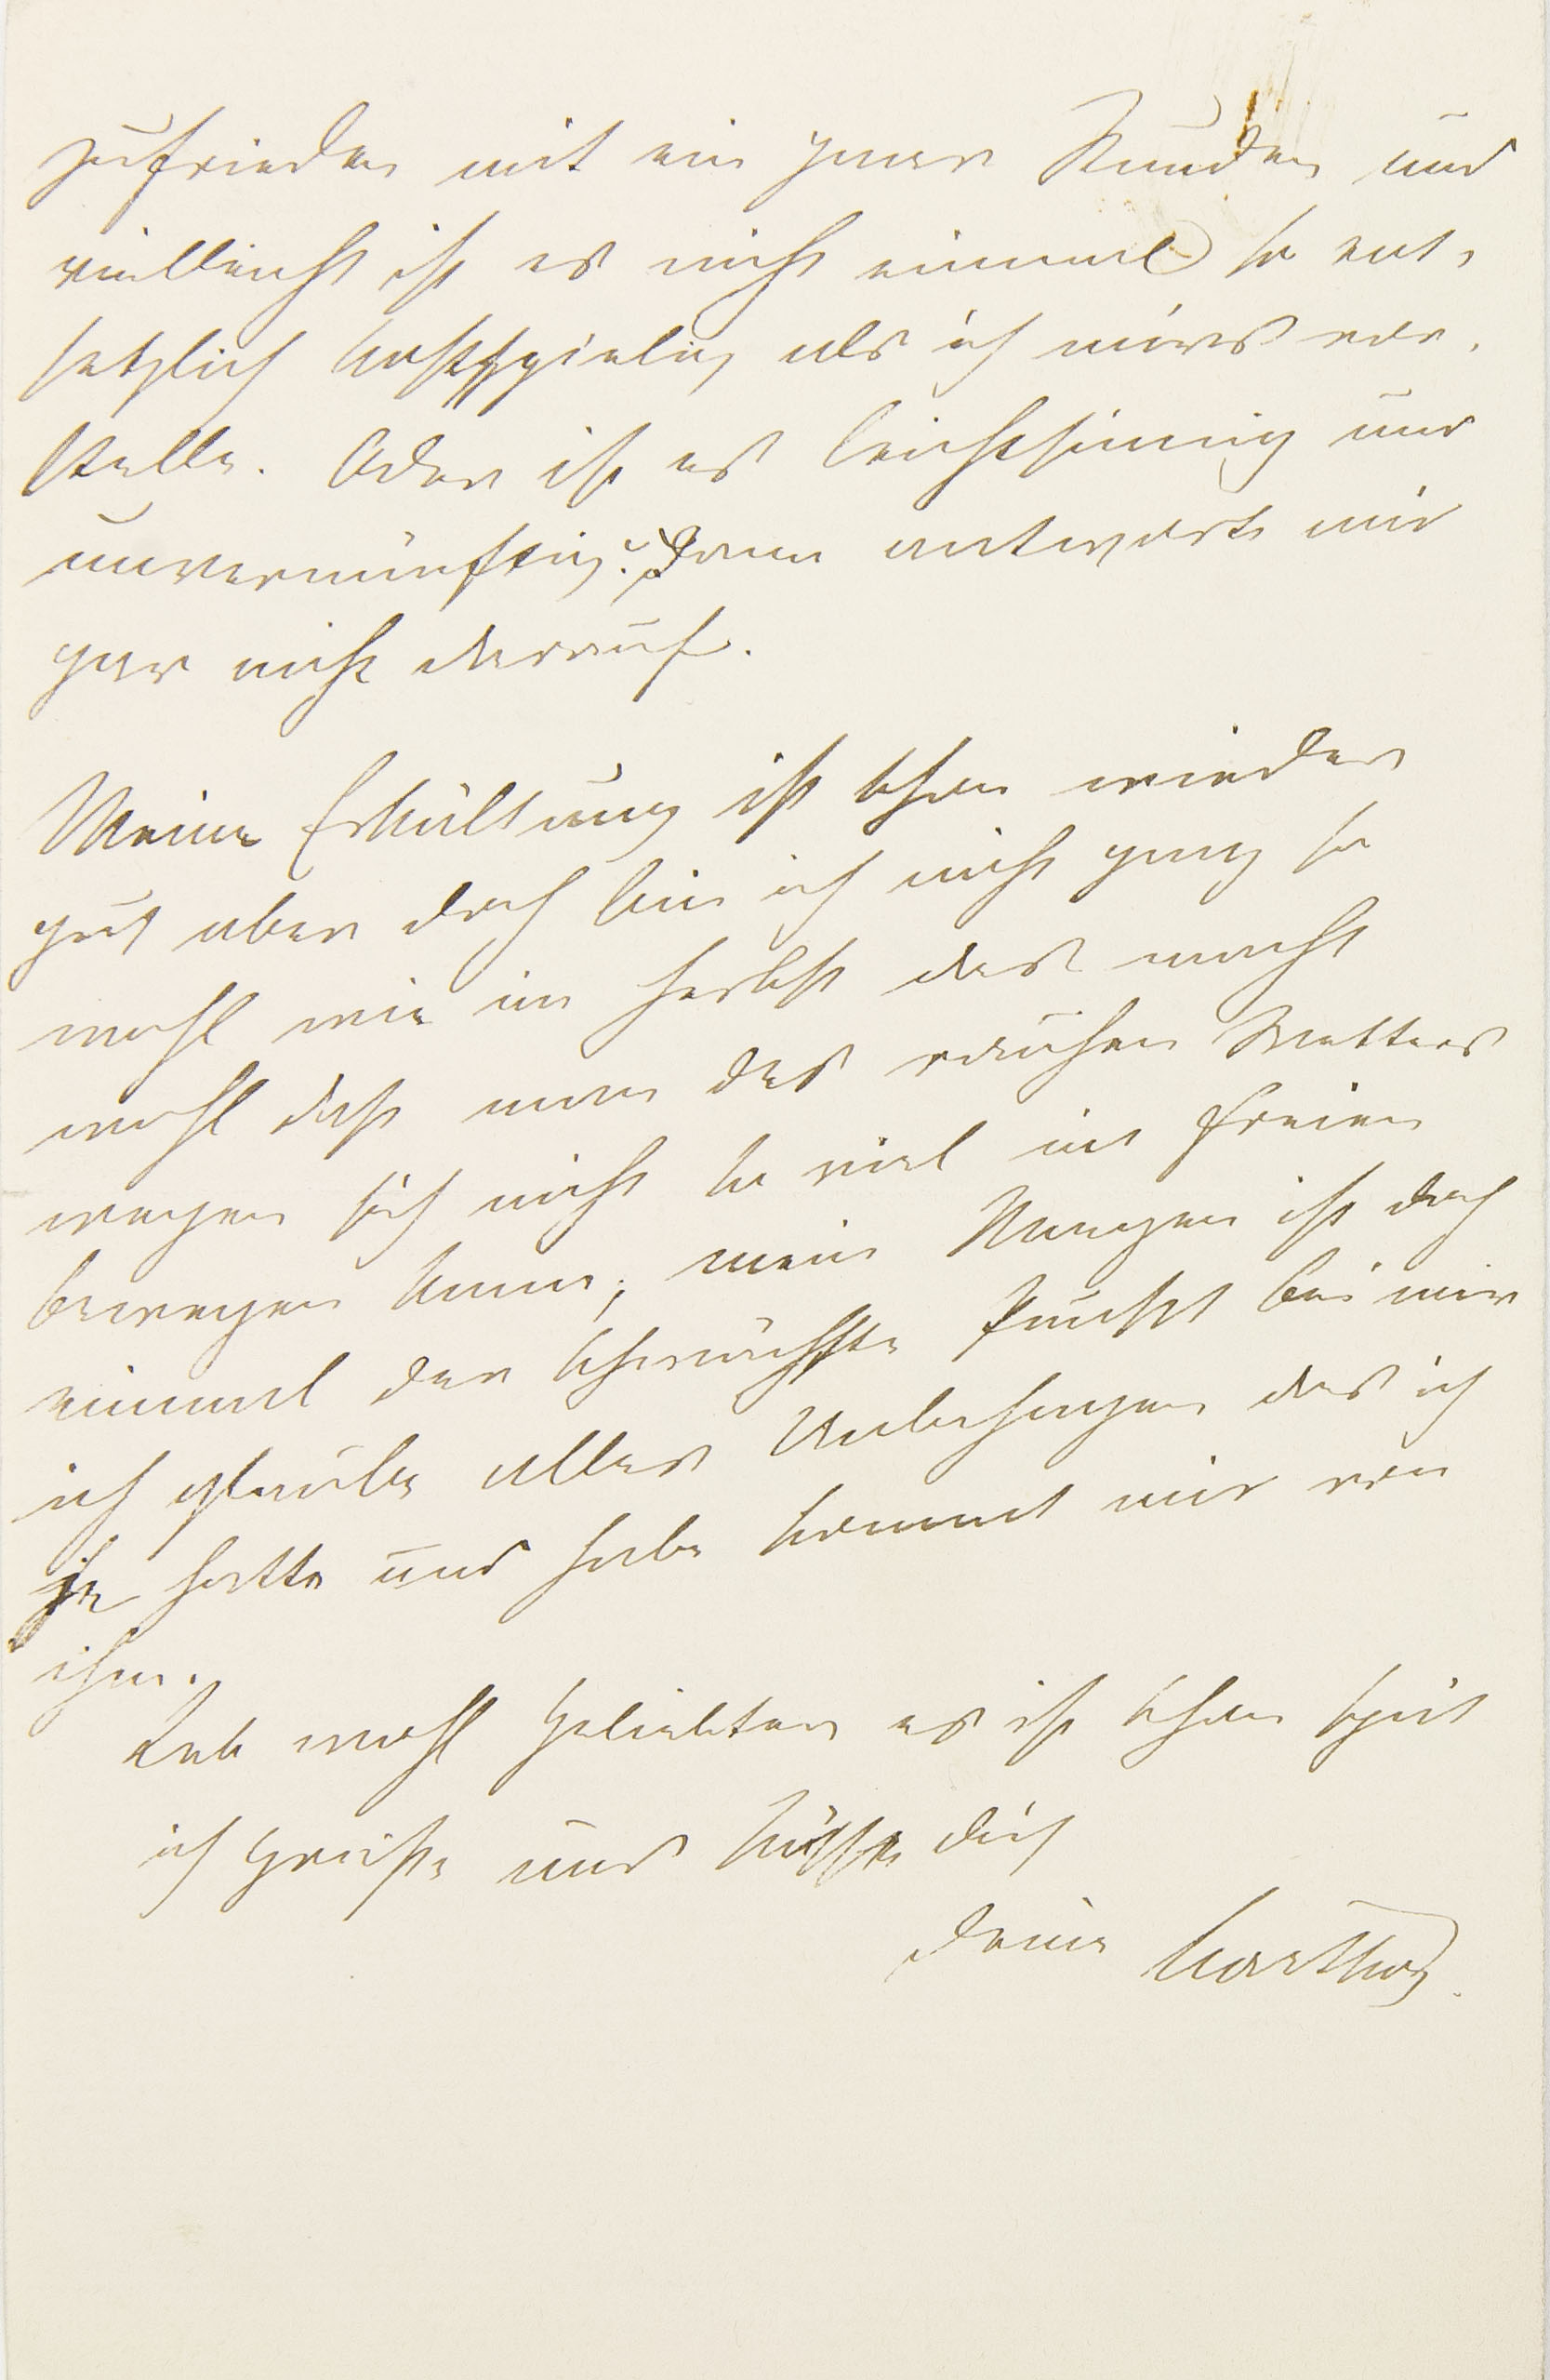 zufrieden mit ein paar Stunden und
vielleicht ist es nicht einmal so ent-
setzlich kostspielig als ich mirs vor-
stelle. Oder ist es leichtsinnig und
unvernünftig? Dann antworte mir
gar nicht darauf.
Meine Erkältung ist schon wieder
gut aber doch bin ich nicht ganz so
wohl wie im Herbst das macht
wohl daß man des rauhen Wetters
wegen sich nicht so viel im Freien
bewegen kann, mein Magen ist doch
einmal der schwächste Punkt bei mir
ich glaube alles Unbehagen das ich
je hatte und habe kommt mir von
ihm.
Leb wohl Geliebter es ist schon spät
ich grüße und küsse dich
deine